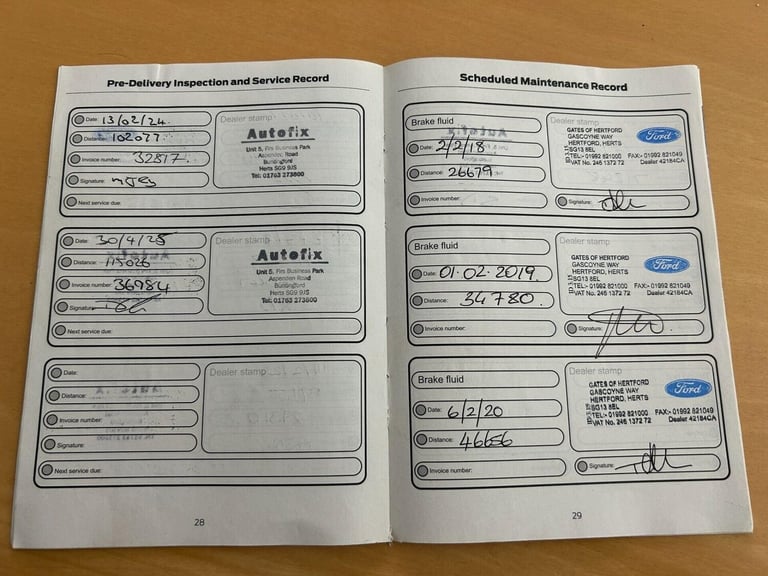 Pre-Delivery Inspection and Service Record
Date: 13/02/24
Distance: 102077
Invoice number: 32817
Signature:
Next service due:
Dealer stamp
Autofix
Unit 5, Firs Business Park
Aspenden Road
Buntingford
Herts SG9 9JS
Tel: 01763 273800
Date: 30/4/25
Distance: 115026
Invoice number: 36984
Signature:
Next service due:
Dealer stamp
Autofix
Unit 5, Firs Business Park
Aspenden Road
Buntingford
Herts SG9 9JS
Tel: 01763 273800
Date:
Distance:
Invoice number:
Signature:
Next service due:
Dealer stamp
28
Scheduled Maintenance Record
Brake fluid
Date: 2/2/18
Distance: 26679
Invoice number:
Dealer stamp
GATES OF HERTFORD
GASCOYNE WAY
HERTFORD, HERTS
SG13 8EL
TEL:- 01992 821000 FAX:- 01992 821049
VAT No. 246 1372 72 Dealer 42184CA
Ford
Signature:
Brake fluid
Date: 01-02-2019
Distance: 34780
Invoice number:
Dealer stamp
GATES OF HERTFORD
GASCOYNE WAY
HERTFORD, HERTS
SG13 8EL
TEL:- 01992 821000 FAX:- 01992 821049
VAT No. 246 1372 72 Dealer 42184CA
Ford
Signature:
Brake fluid
Date: 6/2/20
Distance: 46656
Invoice number:
Dealer stamp
GATES OF HERTFORD
GASCOYNE WAY
HERTFORD, HERTS
SG13 8EL
TEL:- 01992 821000 FAX:- 01992 821049
VAT No. 246 1372 72 Dealer 42184CA
Ford
Signature:
29